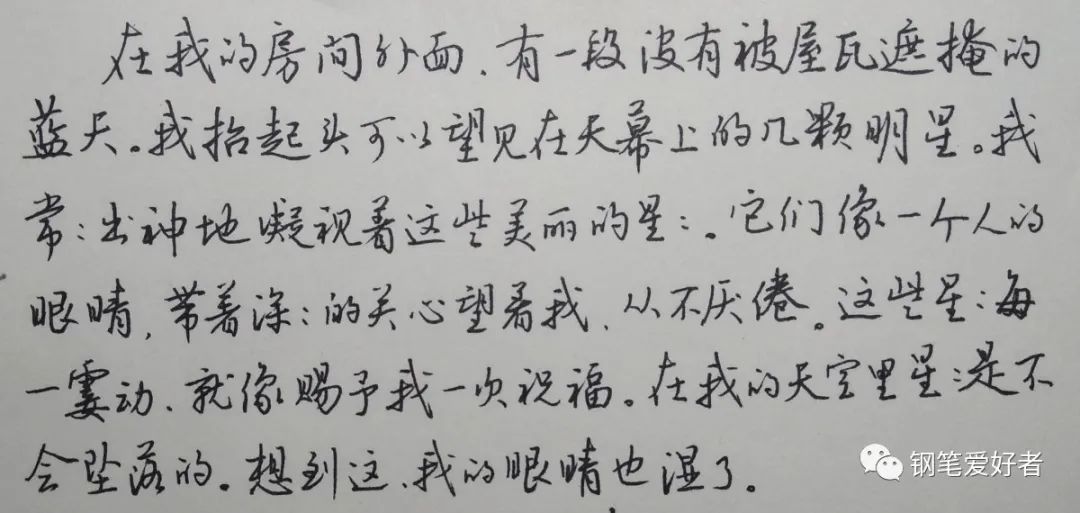 在我的房间外面、有一段没有被屋瓦遮掩的
蓝天。我抬起头可以望见在天幕上的几颗明星。我
常:出神地凝视着这些美丽的星:。它们像一个人的
眼睛,带着深:的关心望着我、从不厌倦。这些星:每
一霎动、就像赐予我一次祝福。在我的天空里星:是不
会坠落的。想到这、我的眼睛也湿了。
钢笔爱好者